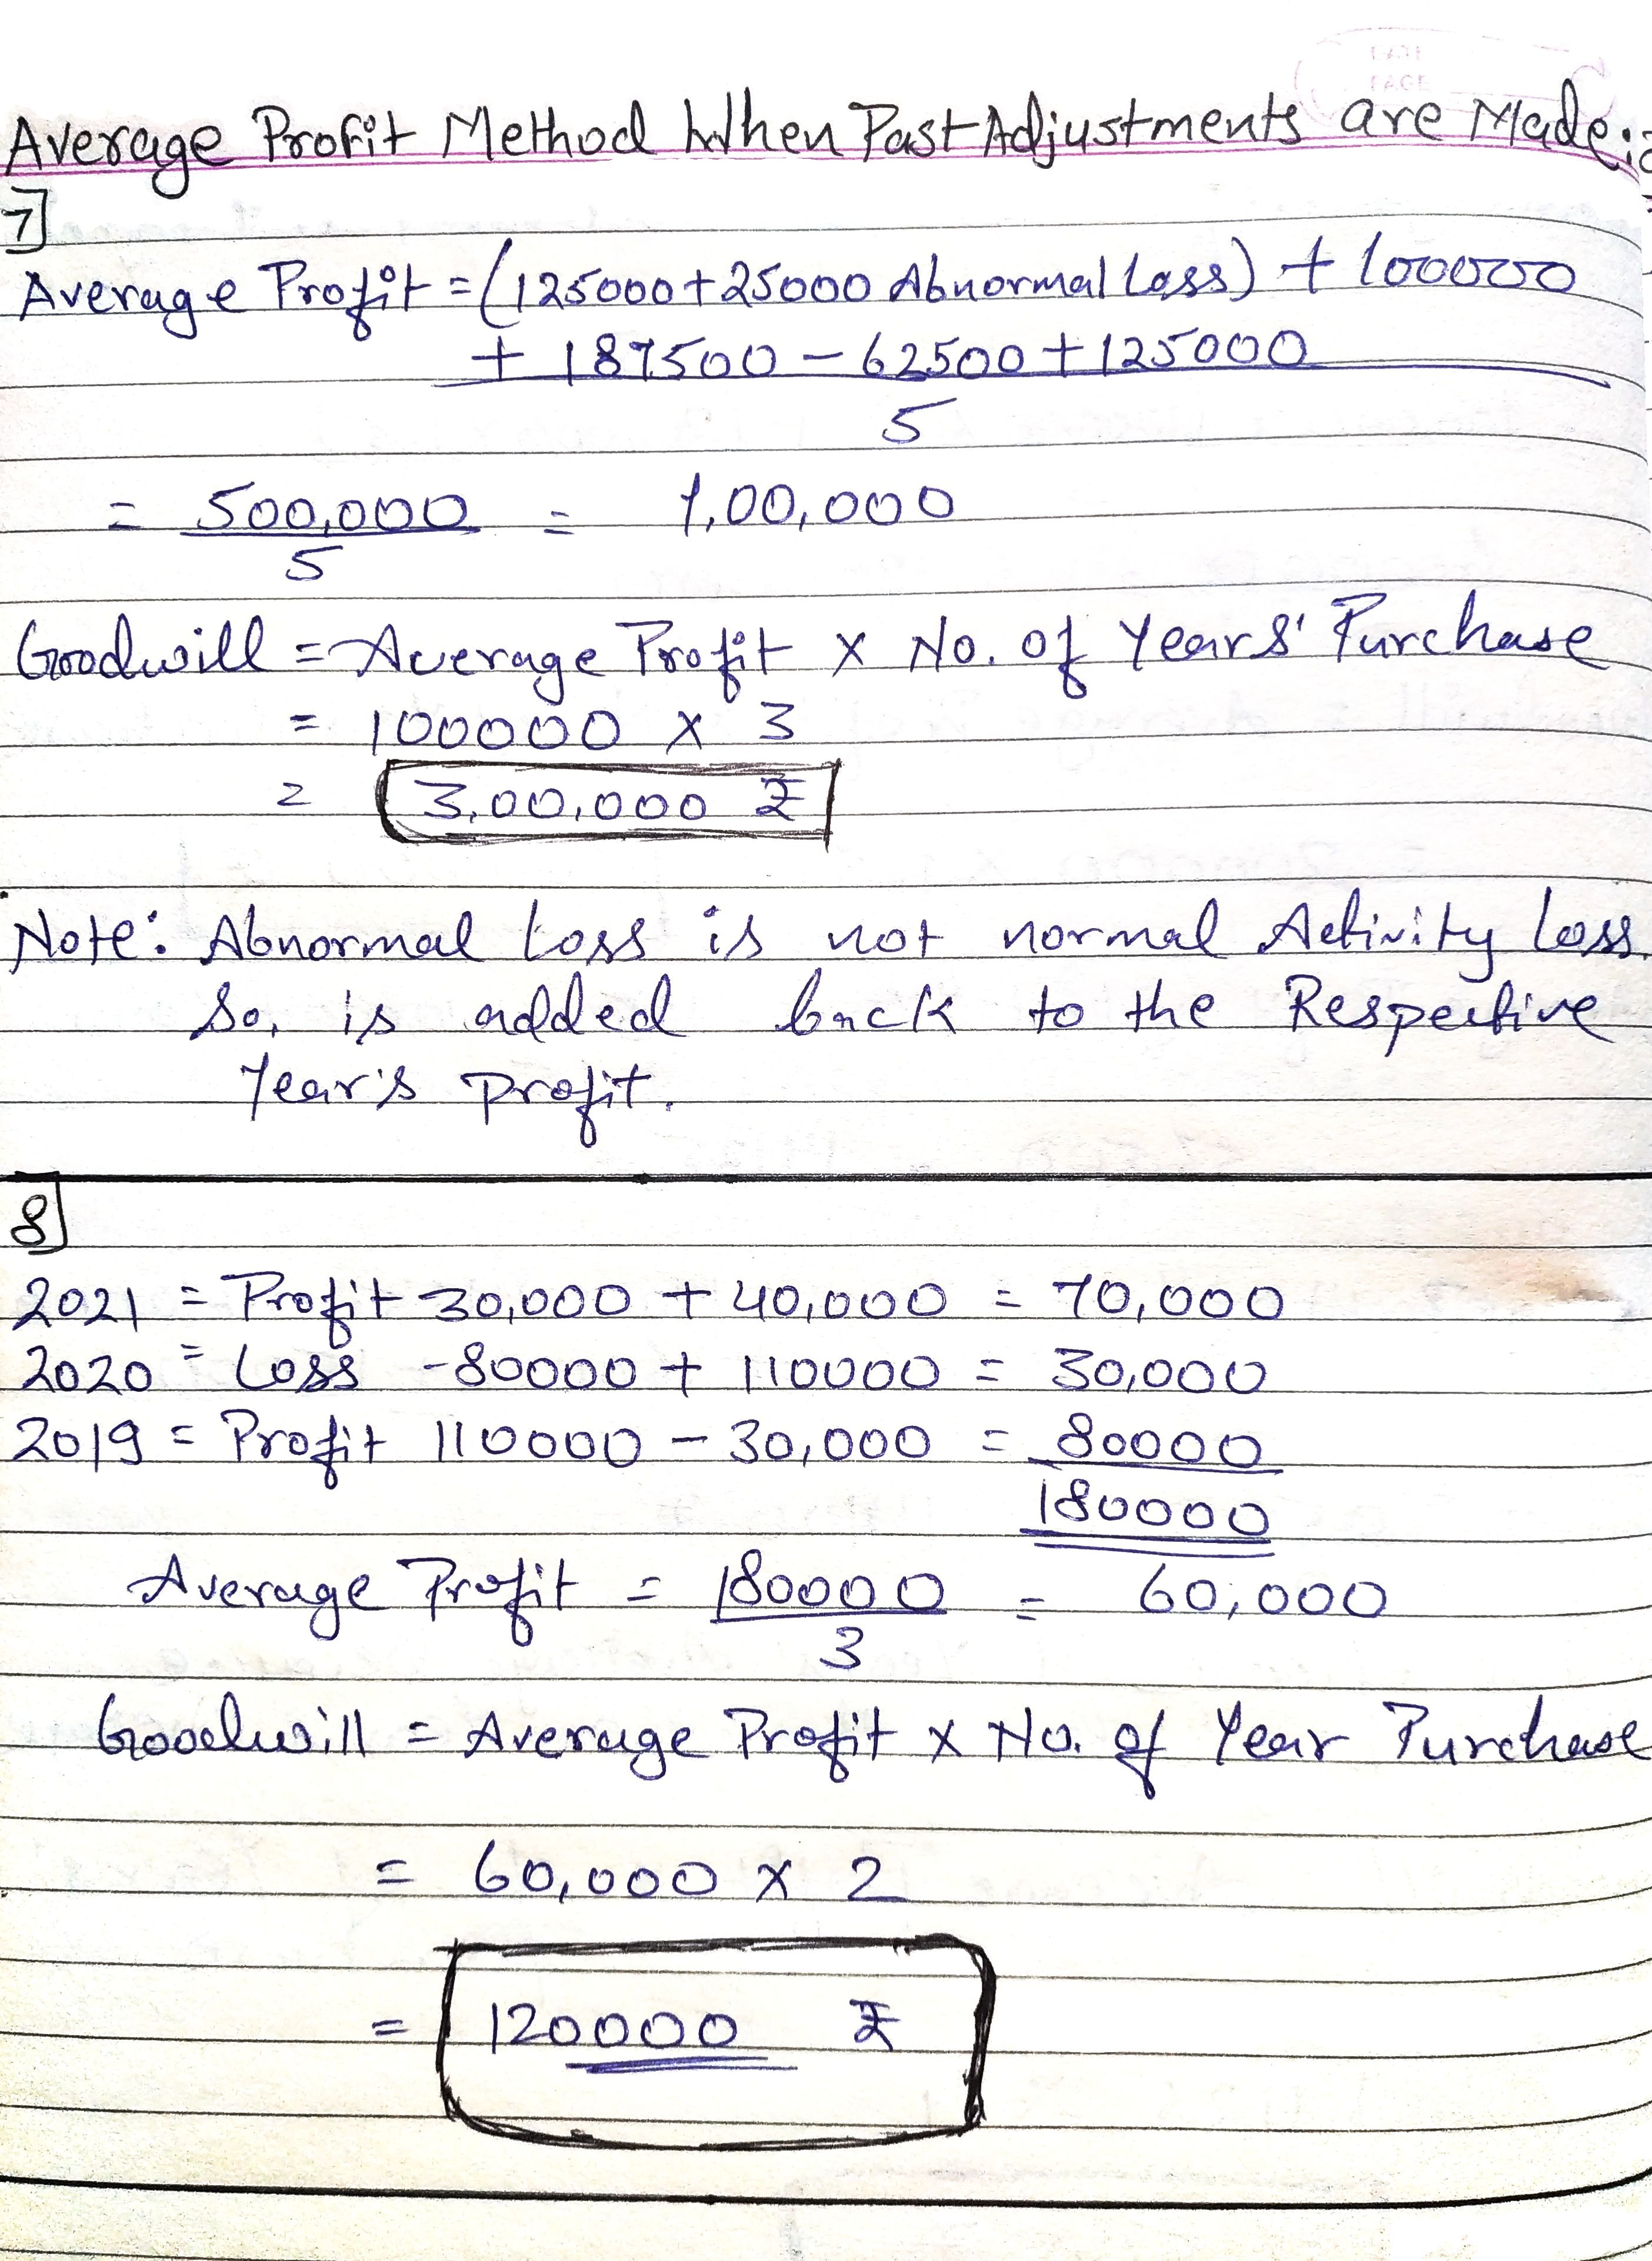 Average Profit Method When Past Adjustments are Made:
7]
Average Profit = (125000 + 25000 Abnormal Loss) + 100000
+ 187500 - 62500 + 125000
5
= 500,000 = 1,00,000
5
Goodwill = Average Profit x No. of Years' Purchase
= 100000 x 3
= 3,00,000 ₹
Note: Abnormal Loss is not normal Activity Loss.
So, is added back to the Respective
Year's profit.
8]
2021 = Profit 30,000 + 40,000 = 70,000
2020 = Loss -80000 + 110000 = 30,000
2019 = Profit 110000 - 30,000 = 80000
180000
Average Profit = 180000 = 60,000
3
Goodwill = Average Profit x No. of Year Purchase
= 60,000 x 2
= 120000 ₹